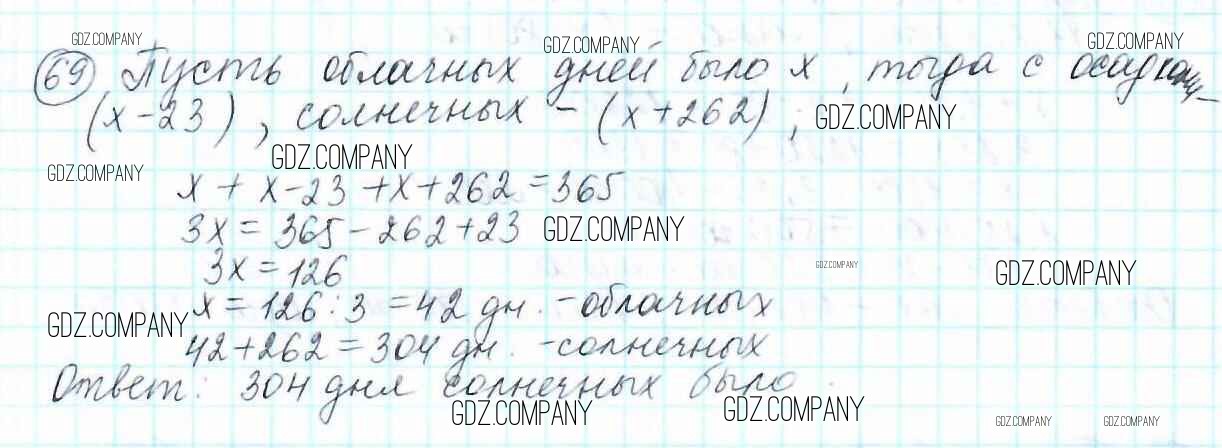 GDZ.COMPANY GDZ.COMPANY GDZ.COMPANY
69 Пусть облачных дней было x, тогда с осадками –
(x-23), солнечных – (x+262); GDZ.COMPANY
GDZ.COMPANY
GDZ.COMPANY
x + x-23 +x+262 =365
3x = 365-262+23 GDZ.COMPANY
GDZ.COMPANY
3x = 126 GDZ.COMPANY
x = 126:3 =42 дн. -облачных
GDZ.COMPANY
42+262 = 304 дн. -солнечных
Ответ: 304 дня солнечных было.
GDZ.COMPANY GDZ.COMPANY
GDZ.COMPANY GDZ.COMPANY